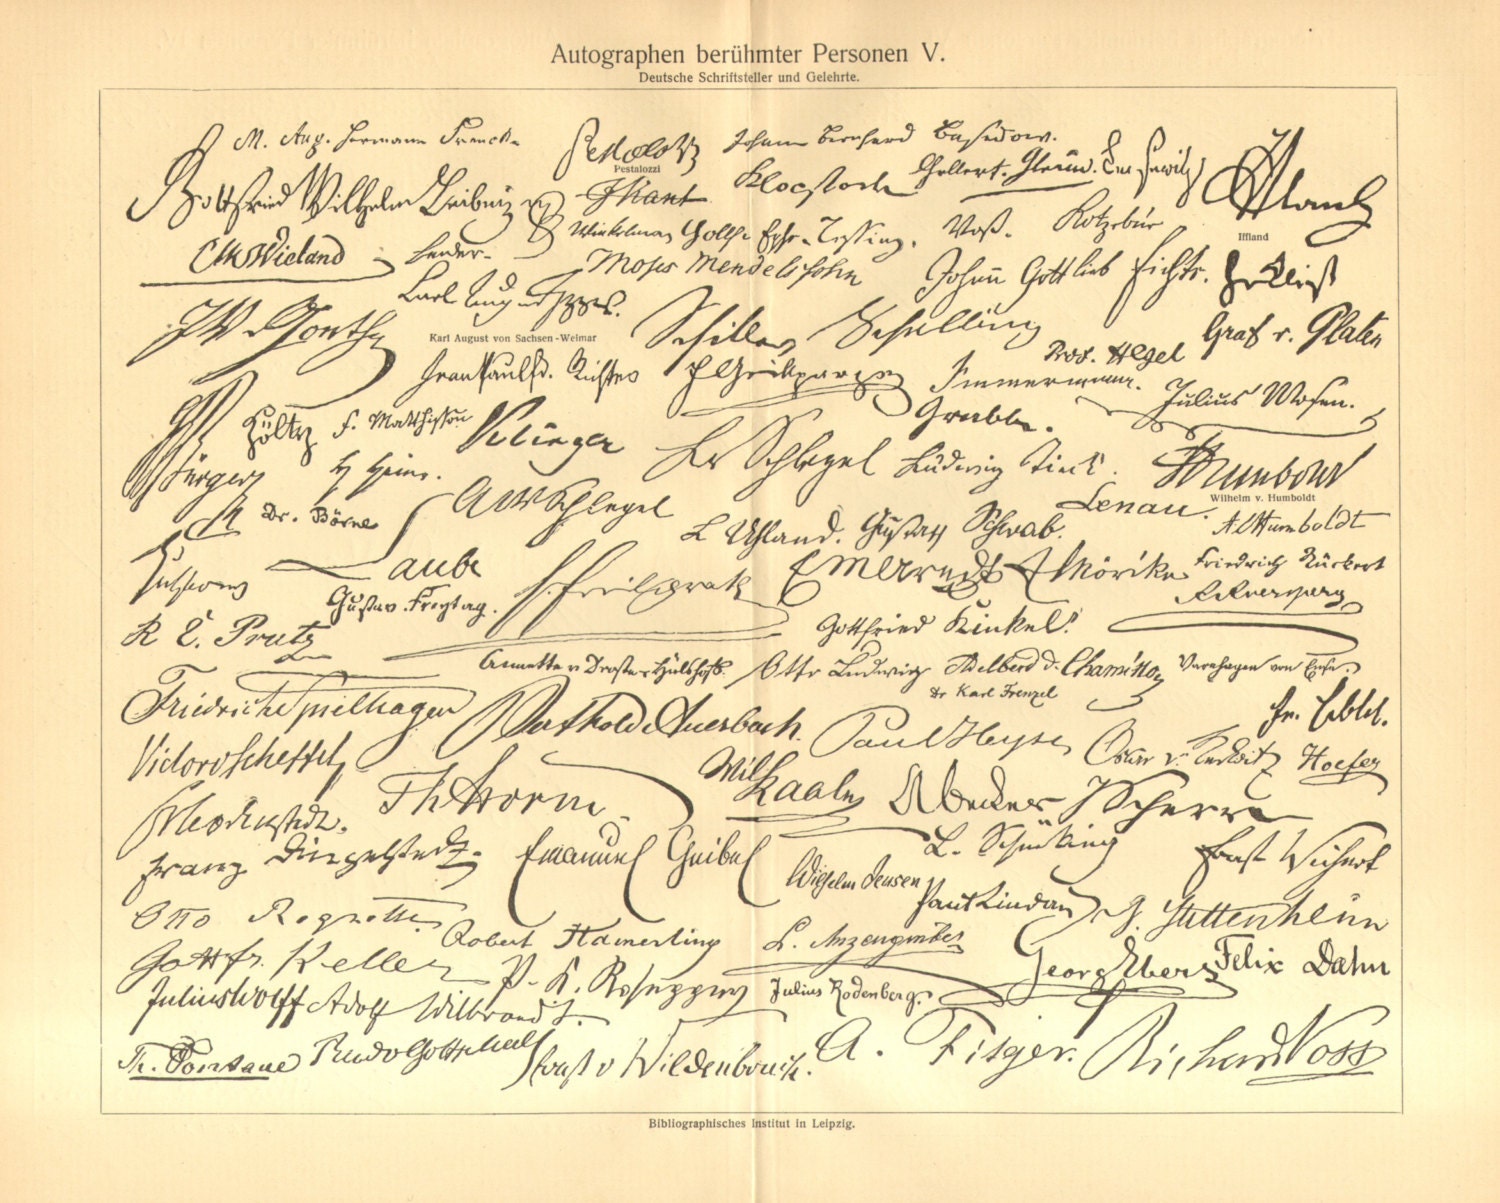 Autographen berühmter Personen V.
Deutsche Schriftsteller und Gelehrte.
M. Aug. Hermann Francke
Pestalozzi
Johann Bernhard Basedow.
Pestalozzi
Gottfried Wilhelm Leibniz
I Kant
Klopstock
Gellert. Gleim.
Iffland
Iffland
CMWieland
Herder
Winkelmann
Gotth. Ephr. Lessing.
Voß.
Kotzebue
Moses Mendelssohn
Johann Gottlieb Fichte.
H v Kleist
Carl August
Karl August von Sachsen-Weimar
JWvGoethe
Schiller
Schelling
Graf v. Platen
Jean Paul Fr. Richter
F Grillparzer
Immermann.
Prof. Hegel
Julius Mosen.
Hölty
F. Matthisson
Klinger
Grabbe.
Bürger
H Heine.
Fr Schlegel
Ludwig Tieck.
Humboldt
Wilhelm v. Humboldt
Dr. Börne
AWvSchlegel
L Uhland.
Gustav Schwab.
Lenau.
AlHumboldt
Gutzkow
Laube
Gustav Freytag.
F. Freiligrath
EMArndt
E Mörike
Friedrich Rückert
AAuersperg
R E. Prutz
Gottfried Kinkel.
Annette v Droste Hülshoff.
Otto Ludwig
Adelbert v. Chamisso
Varnhagen von Ense.
Dr Karl Frenzel
Friedrich Spielhagen
Berthold Auerbach.
Paul Heyse
Oscar v. Redwitz
Fr. Hebbel.
Hoefer
Victor v Scheffel
Th Storm
Wilh Raabe
A Becker
J Scherr
FBodenstedt.
Franz Dingelstedt.
Emanuel Geibel
L. Schücking
Ernst Wichert
Wilhelm Jensen
Paul Lindau
J. Stettenheim
Otto Roquette.
Robert Hamerling
L. Anzengruber
Georg Ebers
Felix Dahn
Gottfr. Keller
P. K. Rosegger
Julius Rodenberg.
Julius Wolff
Adolf Wilbrandt.
Th. Fontane
Rud v Gottschall
Ernst v Wildenbruch.
A. Fitger.
Richard Voss
Bibliographisches Institut in Leipzig.